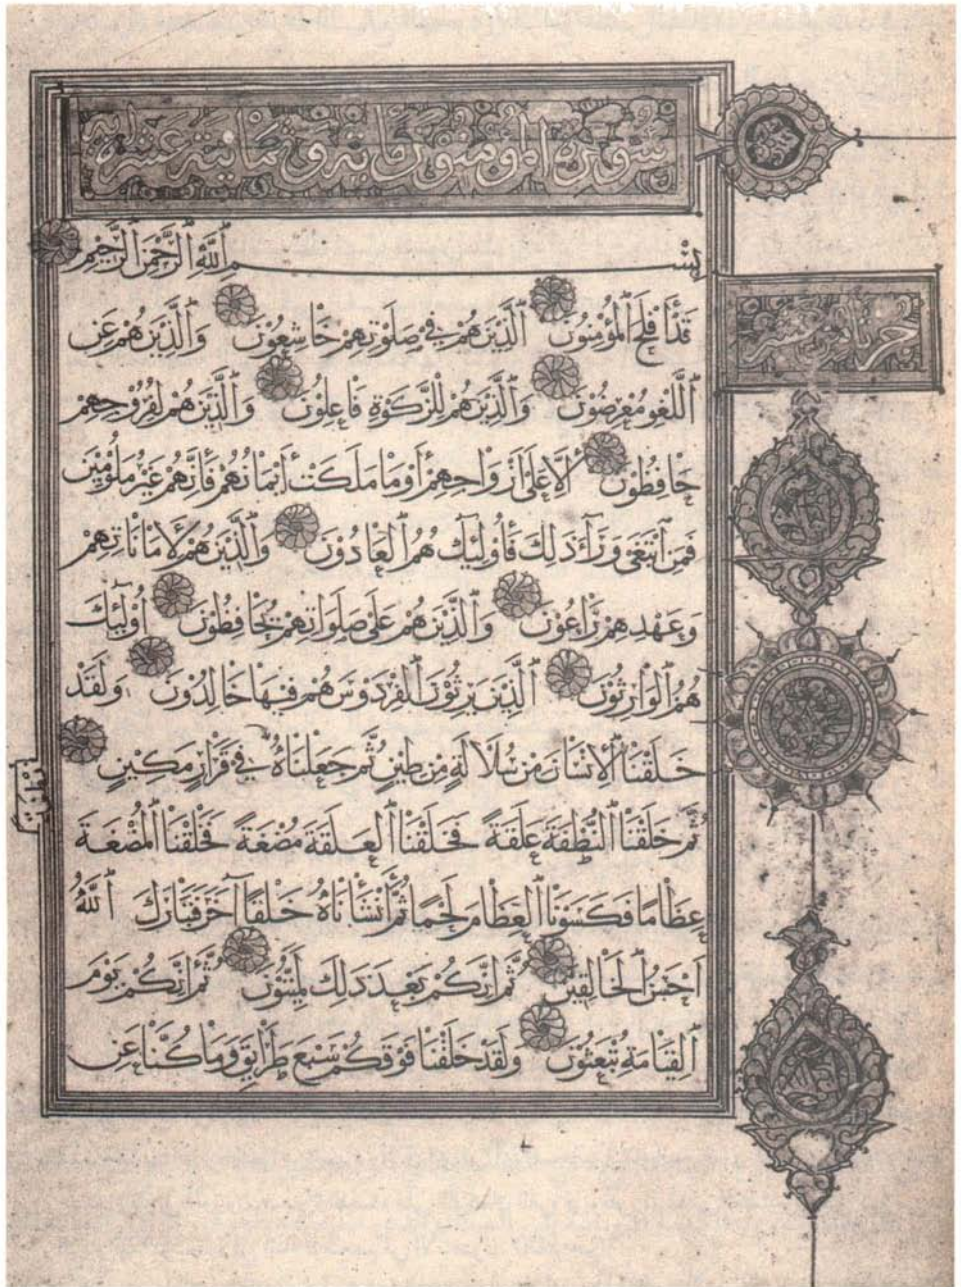 سُوْرَةُ الْمُؤْمِنُوْنَ مِايَة وَثَمَانِيَةَ عَشَرَ اية
بِسْمِ ٱللَّهِ ٱلرَّحْمٰنِ ٱلرَّحِيْمِ
قَدْ أَفْلَحَ ٱلْمُؤْمِنُوْنَ ٱلَّذِيْنَ هُمْ فِي صَلَوٰتِهِمْ خَاشِعُوْنَ وَٱلَّذِيْنَ هُمْ عَنِ
ٱللَّغْوِ مُعْرِضُوْنَ وَٱلَّذِيْنَ هُمْ لِلزَّكَوٰةِ فَاعِلُوْنَ وَٱلَّذِيْنَ هُمْ لِفُرُوْجِهِمْ
حَافِظُوْنَ اِلَّا عَلَىٰ أَزْوَاجِهِمْ أَوْ مَا مَلَكَتْ أَيْمَانُهُمْ فَاِنَّهُمْ غَيْرُ مَلُوْمِيْنَ
فَمَنِ ٱبْتَغَىٰ وَرَآءَ ذَلِكَ فَأُولٰئِكَ هُمُ ٱلْعَادُوْنَ وَٱلَّذِيْنَ هُمْ لِأَمَانَاتِهِمْ
وَعَهْدِهِمْ رَاعُوْنَ وَٱلَّذِيْنَ هُمْ عَلَى صَلَوَاتِهِمْ يُحَافِظُوْنَ أُوْلٰئِكَ
هُمُ ٱلْوَارِثُوْنَ ٱلَّذِيْنَ يَرِثُوْنَ ٱلْفِرْدَوْسَ هُمْ فِيْهَا خَالِدُوْنَ وَلَقَدْ
خَلَقْنَا ٱلْاِنْسَانَ مِنْ سُلَالَةٍ مِنْ طِيْنٍ ثُمَّ جَعَلْنَاهُ فِي قَرَارٍ مَكِيْنٍ
نُطْفَةً
ثُمَّ خَلَقْنَا ٱلنُّطْفَةَ عَلَقَةً فَخَلَقْنَا ٱلْعَلَقَةَ مُضْغَةً فَخَلَقْنَا ٱلْمُضْغَةَ
عِظَامًا فَكَسَوْنَا ٱلْعِظَامَ لَحْمًا ثُمَّ أَنْشَأْنَاهُ خَلْقًا آخَرَ فَتَبَارَكَ ٱللَّهُ
اَحْسَنُ ٱلْخَالِقِيْنَ ثُمَّ اِنَّكُمْ بَعْدَ ذَلِكَ لَمَيِّتُوْنَ ثُمَّ اِنَّكُمْ يَوْمَ
ٱلْقِيَامَةِ تُبْعَثُوْنَ وَلَقَدْ خَلَقْنَا فَوْقَكُمْ سَبْعَ طَرَآئِقَ وَمَا كُنَّا عَنِ